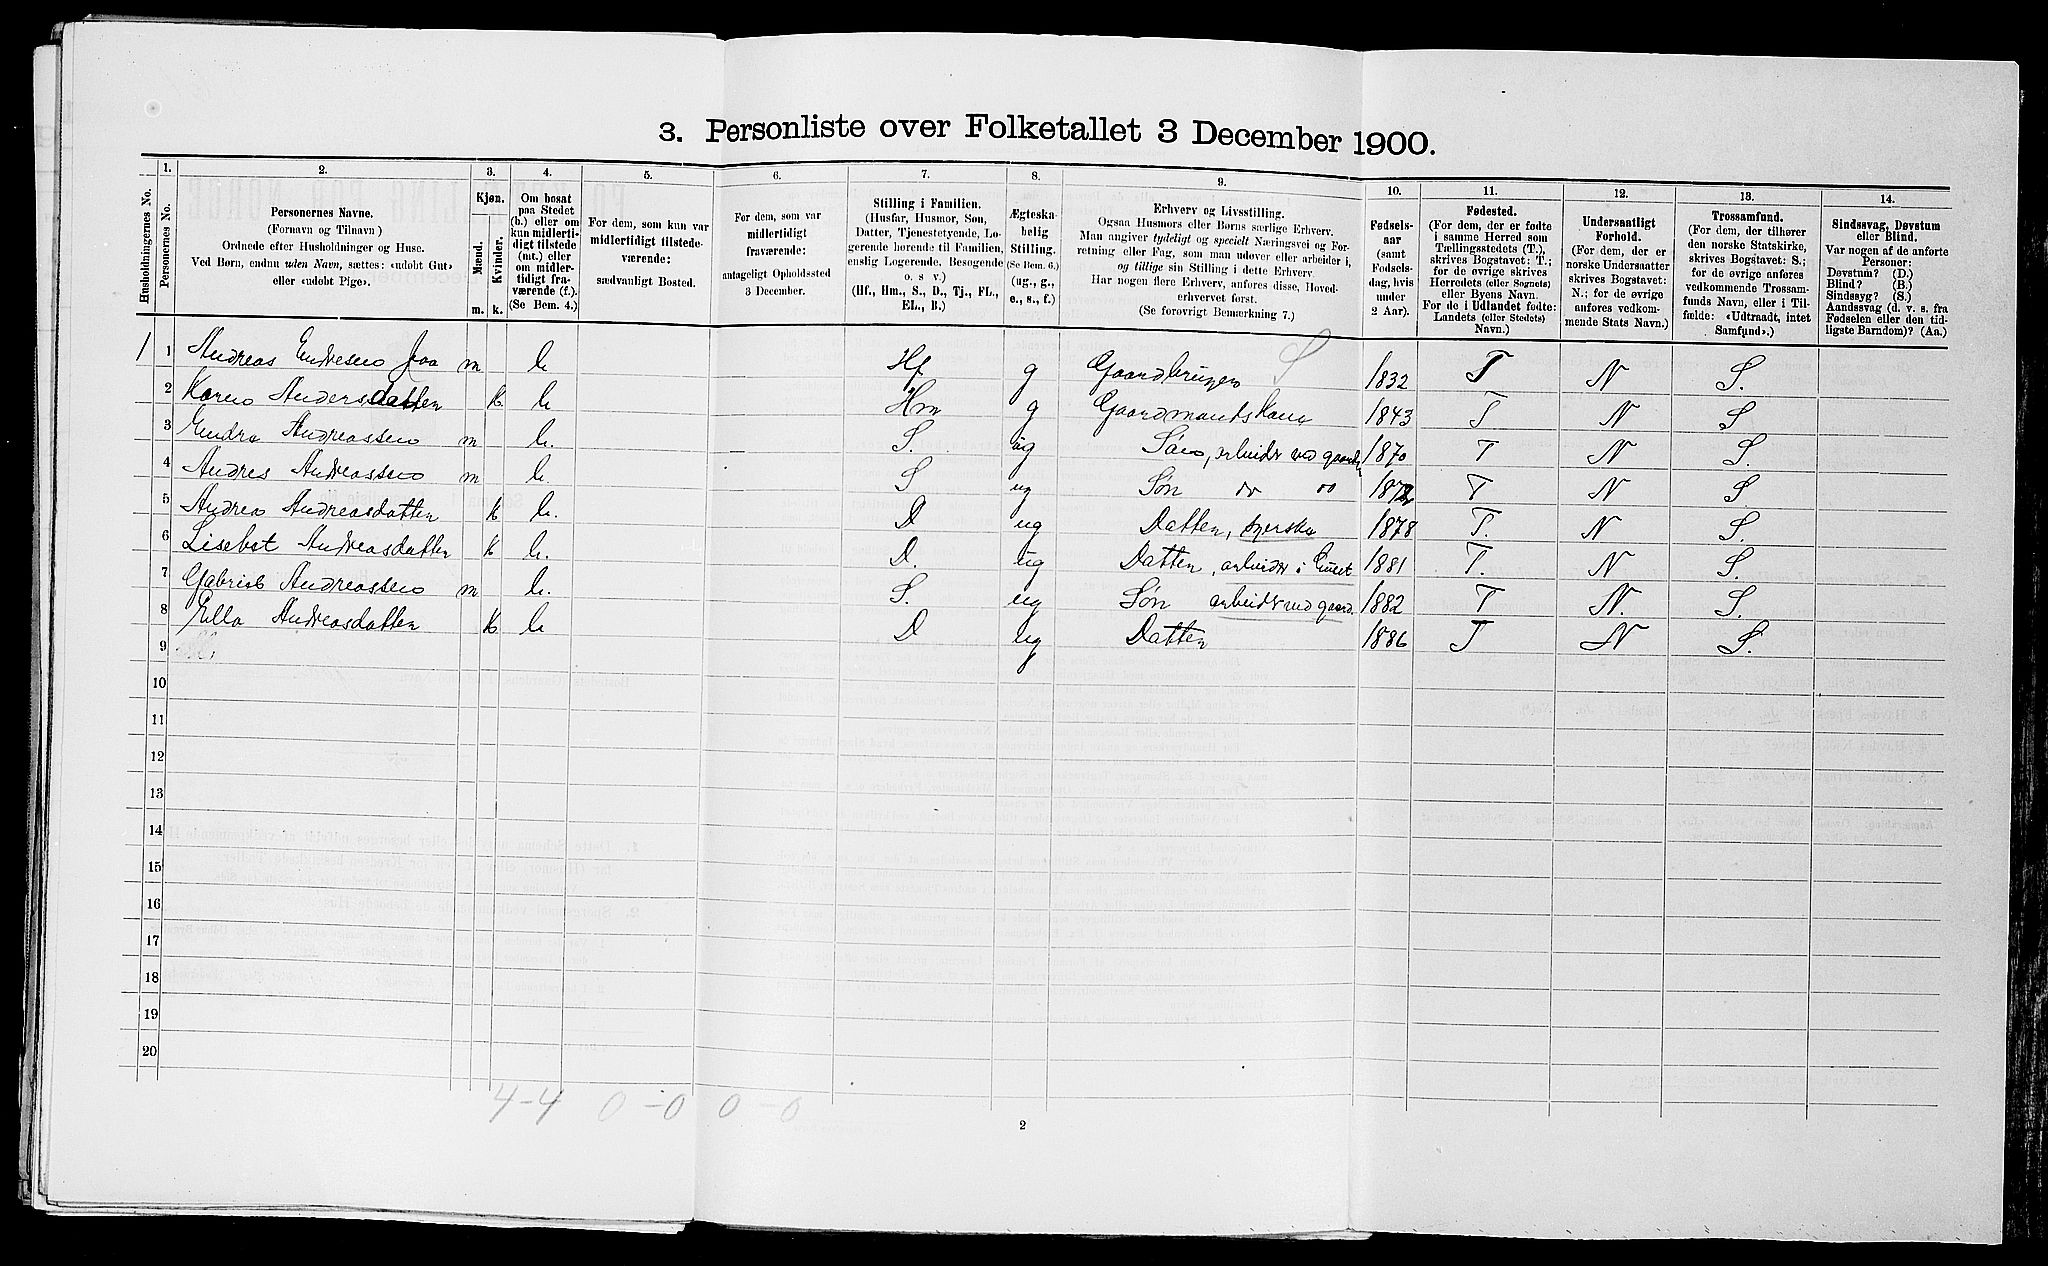 3. Personliste over Folketallet 3 December 1900.
Husholdningernes No.
1.
Personernes No.
2.
Personernes Navne.
(Fornavn og Tilnavn)
Ordnede efter Husholdninger og Huse.
Ved Børn, endnu uden Navn, sættes: «udøbt Gut»
eller «udøbt Pige».
3.
Kjøn.
Mænd.
Kvinder.
m.
k.
4.
Om bosat
paa Stedet
(b.) eller om
kun midlerti-
digt tilstede
(mt.) eller
om midler-
tidigt fra-
værende (f.).
(Se Bem. 4.)
5.
For dem, som kun var
midlertidigt tilstede-
værende:
sædvanligt Bosted.
6.
For dem, som var
midlertidigt
fraværende:
antageligt Opholdssted
3 December.
7.
Stilling i Familien.
(Husfar, Husmor, Søn,
Datter, Tjenestetyende, Lo-
gerende hørende til Familien,
enslig Logerende, Besøgende
o. s. v.)
(Hf., Hm., S., D., Tj., FL.,
EL., B.)
8.
Ægteska-
belig
Stilling.
(Se Bem. 6.)
(ug., g.,
e., s., f.)
9.
Erhverv og Livsstilling.
Ogsaa Husmors eller Børns særlige Erhverv.
Man angiver tydeligt og specielt Næringsvei og For-
retning eller Fag, som man udøver eller arbeider i,
og tillige sin Stilling i dette Erhverv.
Har nogen flere Erhverv, anføres disse, Hoved-
erhvervet først.
(Se forøvrigt Bemærkning 7.)
10.
Fødsels-
aar
(samt
Fødsels-
dag, hvis
under
2 Aar).
11.
Fødested.
(For dem, der er fødte
i samme Herred som
Tællingsstedets (T.),
skrives Bogstavet: T.;
for de øvrige skrives
Herredets (eller Sognets)
eller Byens Navn.
For de i Udlandet fødte:
Landets (eller Stedets)
Navn.)
12.
Undersaatligt
Forhold.
(For dem, der er
norske Undersaatter
skrives Bogstavet:
N.; for de øvrige
anføres vedkom-
mende Stats Navn.)
13.
Trossamfund.
(For dem, der tilhører
den norske Statskirke,
skrives Bogstavet: S.;
for de øvrige anføres
vedkommende Trossam-
funds Navn, eller i Til-
fælde: «Udtraadt, intet
Samfund».)
14.
Sindssvag, Døvstum
eller Blind.
Var nogen af de anførte
Personer:
Døvstum? (D.)
Blind? (B.)
Sindssyg? (S.)
Aandssvag (d. v. s. fra
Fødselen eller den tid-
ligste Barndom)? (Aa.)
1 1 Andreas Endresen m b. Hf g Gaardbruger S 1832 T N S.
2 Karen Andersdatter k b Hm g Gaardmandskone 1843 T N S
3 Endre Andreassen m b. S. ug Søn, arbeider ved gaarden 1870 T N S.
4 Andres Andreassen m b. S ug Søn do do T N S
5 Andrea Andreasdatter k b. D ug Datter, syerske 1878 T. N S.
6 Lisebet Andreasdatter k b. D. ug Datter, arbeider i huset 1881 T. N S.
7 Gabriel Andreassen m b. S. ug Søn arbeider ved gaard. 1882 T N. S.
8 Ella Andreasdatter k b D ug Datter 1886 T N S.
9
10
11
12
13
14
15
16
17
18
19
20
4-4 0-0 0-0
2